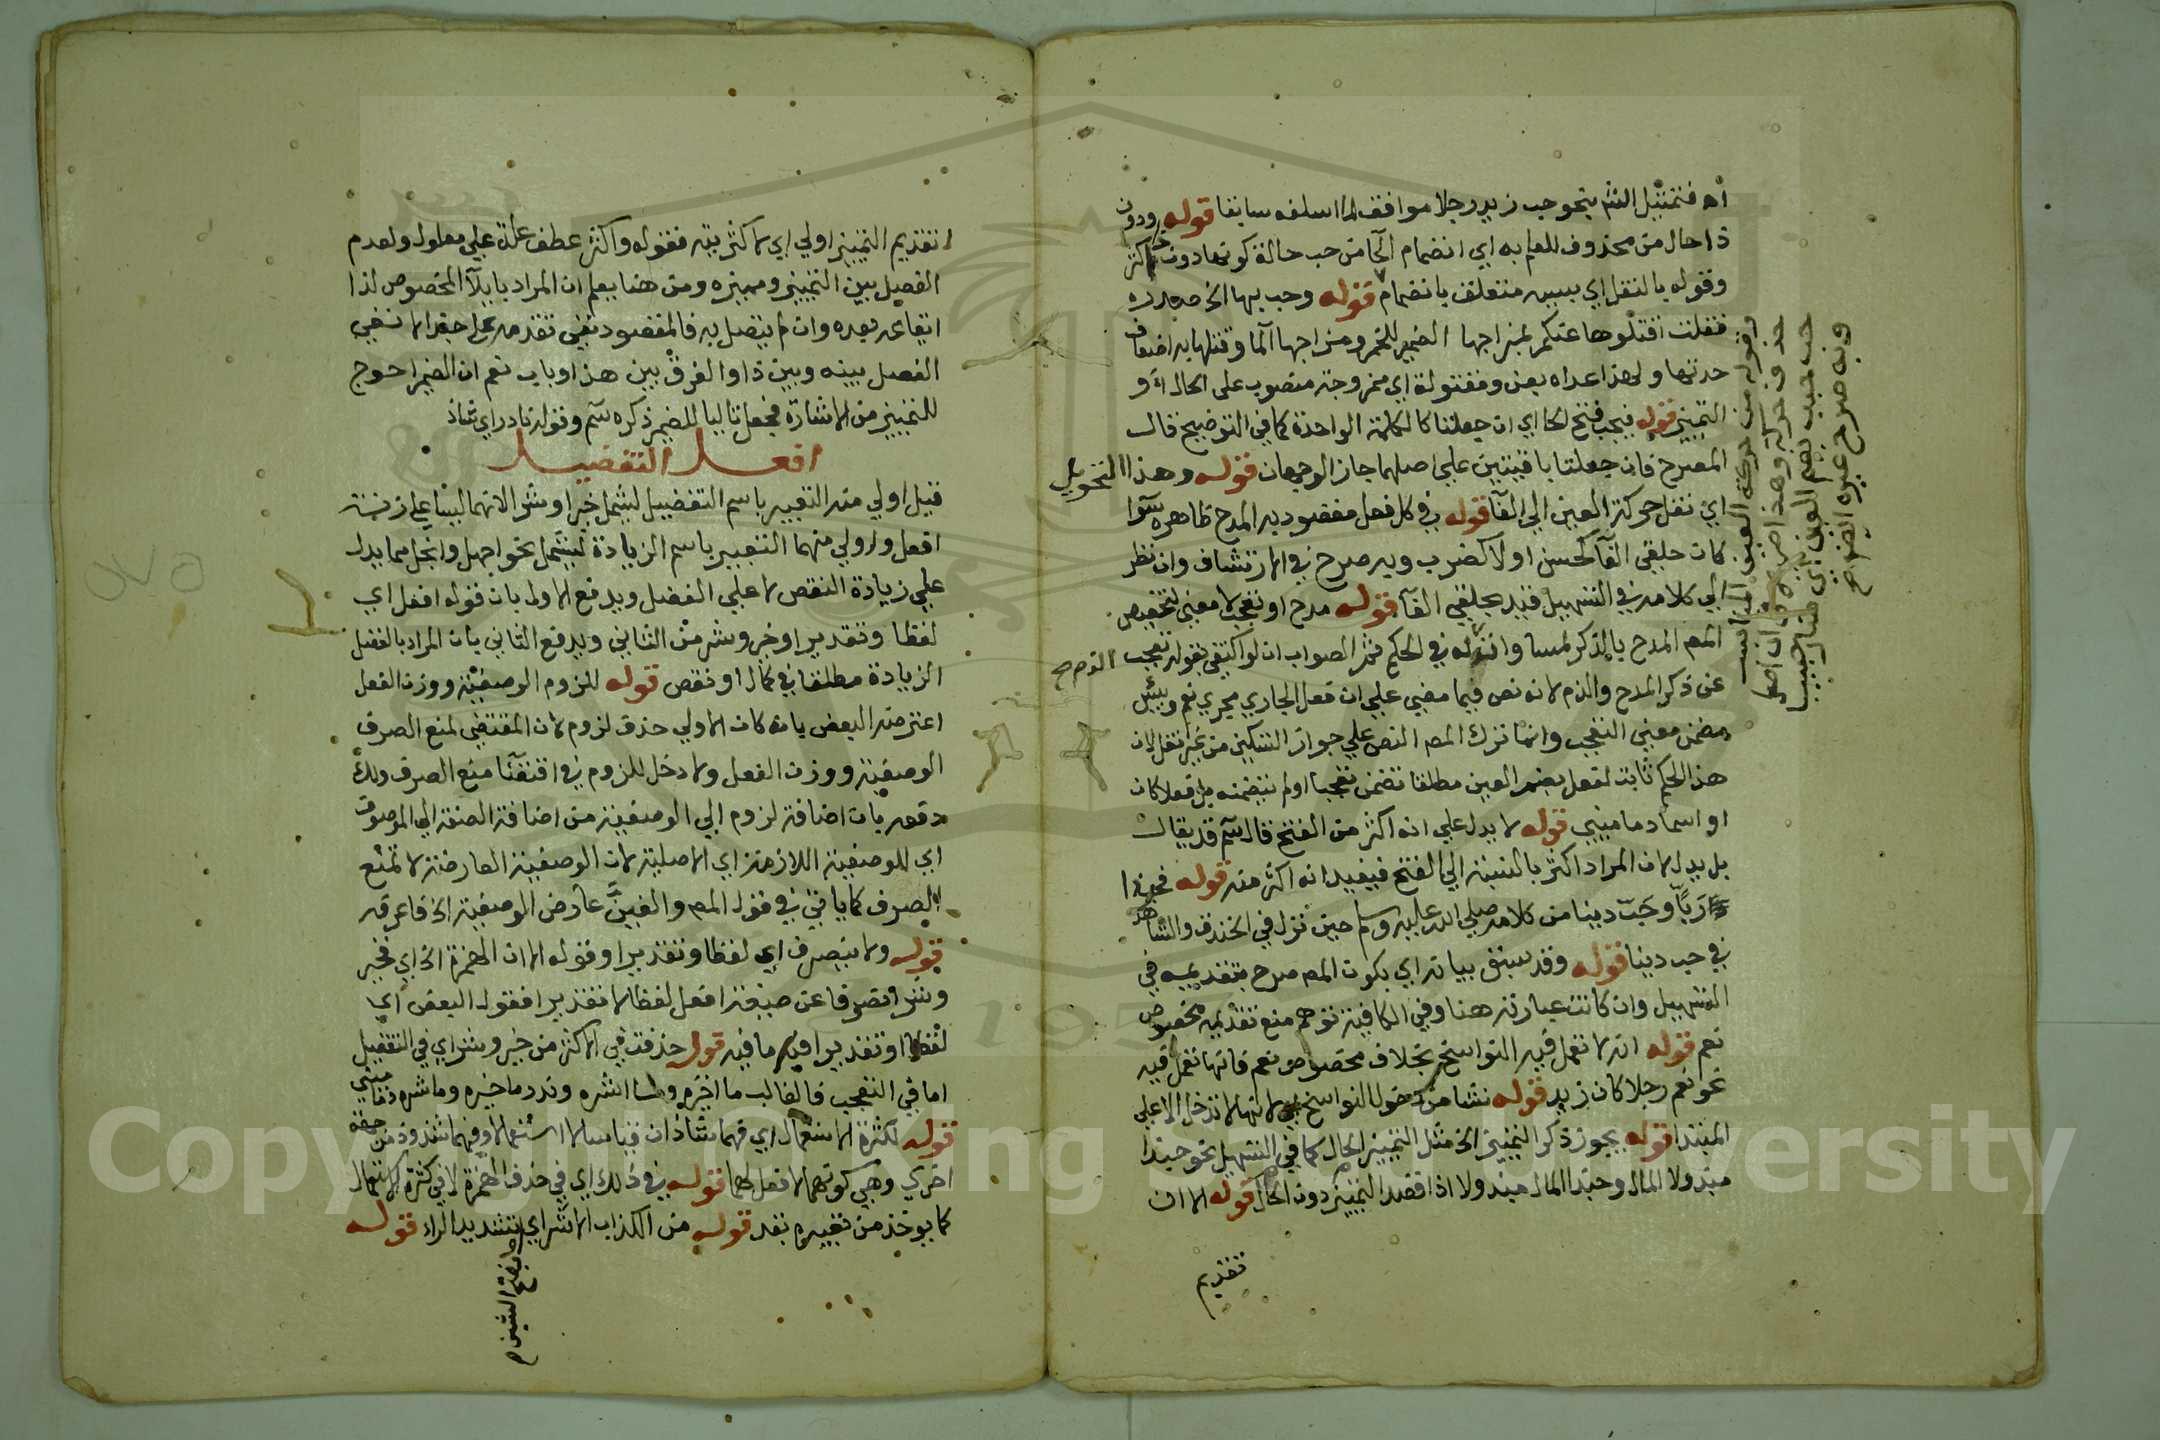 اه فتمثيل الش بنحو حب زيد رجلا موافق لما اسلفه سابقا قوله ودون
ذا حال من محذوف للعلم به اي انضمام الحا من حب حالة كونها دون ذا كثر
وقوله بالنقل اي بسبب متعلق بانضمام قوله وحب بها الخ صدره
فقلت اقتلوها عنكم بمزاجها الضمير للخمر ومزاجها الما وقتلها به اضعاف
حدتها ولهذا عداه بعن ومقتولة اي ممزوجة منصوب على الحال او
التمييز قوله فيجب فتح الحا اي ان جعلتا كالكلمة الواحدة كما في التوضيح قال
المصرح فان جعلتا باقيتين على اصلهما جاز الوجهان قوله وهذا التحويل
اي نقل حركة العين الى الفا قوله في كل فعل مقصود به المدح ظاهره سوا
كان حلقي الفا كحسن اولا كضرب وبه صرح في الارتشاف وان نظر
الى كلامه في التسهيل قيد بحلقي الفا قوله مدح او تعجب لا معنى لتخصيص
المص المدح بالذكر لمساواة الذم له في الحكم ثم الصواب ان لو اكتفى بقوله تعجب
عن ذكر المدح والذم لانه نص فيما مضى على ان فعل الجاري مجرى نعم وبئس
مضمن معنى التعجب وانما ترك المص النص على جواز التسكين من غير نقل لان
هذا الحكم ثابت لفعل بضم العين مطلقا تضمن تعجبا او لم يتضمنه بل فعلا كان
او اسما دماميني قوله لا يدل على انه اكثر من الفتح قال سم قد يقال
بل يدل لان المراد اكثر بالنسبة الى الفتح فيفيد انه اكثر منه قوله فحبذا
ربا وحب دينا من كلامه صلى الله عليه وسلم حين نزل في الخندق والشاهد
في حب دينا قوله وقد سبق بيانه اي بكون المص صرح بتقديمه في
التسهيل وان كانت عبارته هنا وفي الكافية توهم منع تقديم مخصوص
نعم قوله انه لا تعمل فيه النواسخ بخلاف مخصوص نعم فانها تعمل فيه
نحو نعم رجلا كان زيد قوله نشا من دخول النواسخ لانها لا تدخل الا على
المبتدا قوله يجوز ذكر التمييز الخ مثل التمييز الحال كما في التسهيل نحو حبذا
مبذولا المال وحبذا المال مبذولا اذا قصد التمييز دون الحال قوله الا ان
تقديم
وقوله من حركة العين المناسب
حذف حركة وهذا ضمه فان اصل
حب حبب بضم العين اي صار حبيبا
وبه صرح غيره ايضا صح
الذم صح
تقديم التمييز اولى اي لاكثريته فقوله واكثر عطف علة على معلول ولعدم
الفصل بين التمييز ومميزه ومن هنا يعلم ان المراد بايلا المخصوص لذا
ايقاعه بعده وان لم يتصل به فالمقصود نفي تقدمه على حبذا لا نفي
الفصل بينه وبين ذا والفرق بين هذا وباب نعم ان الضمير احوج
للتمييز من الاشارة فجعل تاليا للضمير ذكره سم وقوله نادر اي شاذ
افعل التفضيل
قيل اولى منه التعبير باسم التفضيل ليشمل خير او شر لانهما ليسا على زنة
افعل واولى منهما التعبير باسم الزيادة ليشمل نحو اجهل وابخل مما يدل
على زيادة النقص لا على الفضل ويدفع الاول بان قوله افعل اي
لفظا او تقديرا وخير وشر من الثاني ويدفع الثاني بان المراد بالفضل
الزيادة مطلقا في كمال او نقص قوله للزوم الوصفية ووزن الفعل
اعترضه البعض بانه كان الاولى حذف لزوم لان المقتضي لمنع الصرف
الوصفية ووزن الفعل ولا دخل للزوم في اقتضا منع الصرف ولك
دفعه بان اضافة لزوم الى الوصفية من اضافة الصفة الى الموصوف
اي للوصفية اللازمة اي الاصلية لان الوصفية العارضة لا تمنع
الصرف كما ياتي في قول المص والغين عارض الوصفية الخ فاعرفه
قوله ولا ينصرف اي لفظا وتقديرا وقوله الا ان الهمزة الخ اي فخير
وشر انصرفا عن صيغة افعل لفظا لا تقديرا فقول البعض اي
لفظا او تقديرا فيه ما فيه قوله حذفت في الاكثر من خير وشر اي في التفضيل
اما في التعجب فالغالب ما اخيره وما اشره وندر ما خيره وما شره دماميني
قوله لكثرة الاستعمال اي فهما شاذان قياسا لا استعمالا وفيهما شذوذ من جهة
اخرى وهي كونهما لا فعل لهما قوله في ذلك اي في حذف الهمزة لا في كثرة الاستعمال
كما يوخذ من تغييره بقد قوله من الكذاب الاشر اي بتشديد الراء قوله
وبفتح الشين م